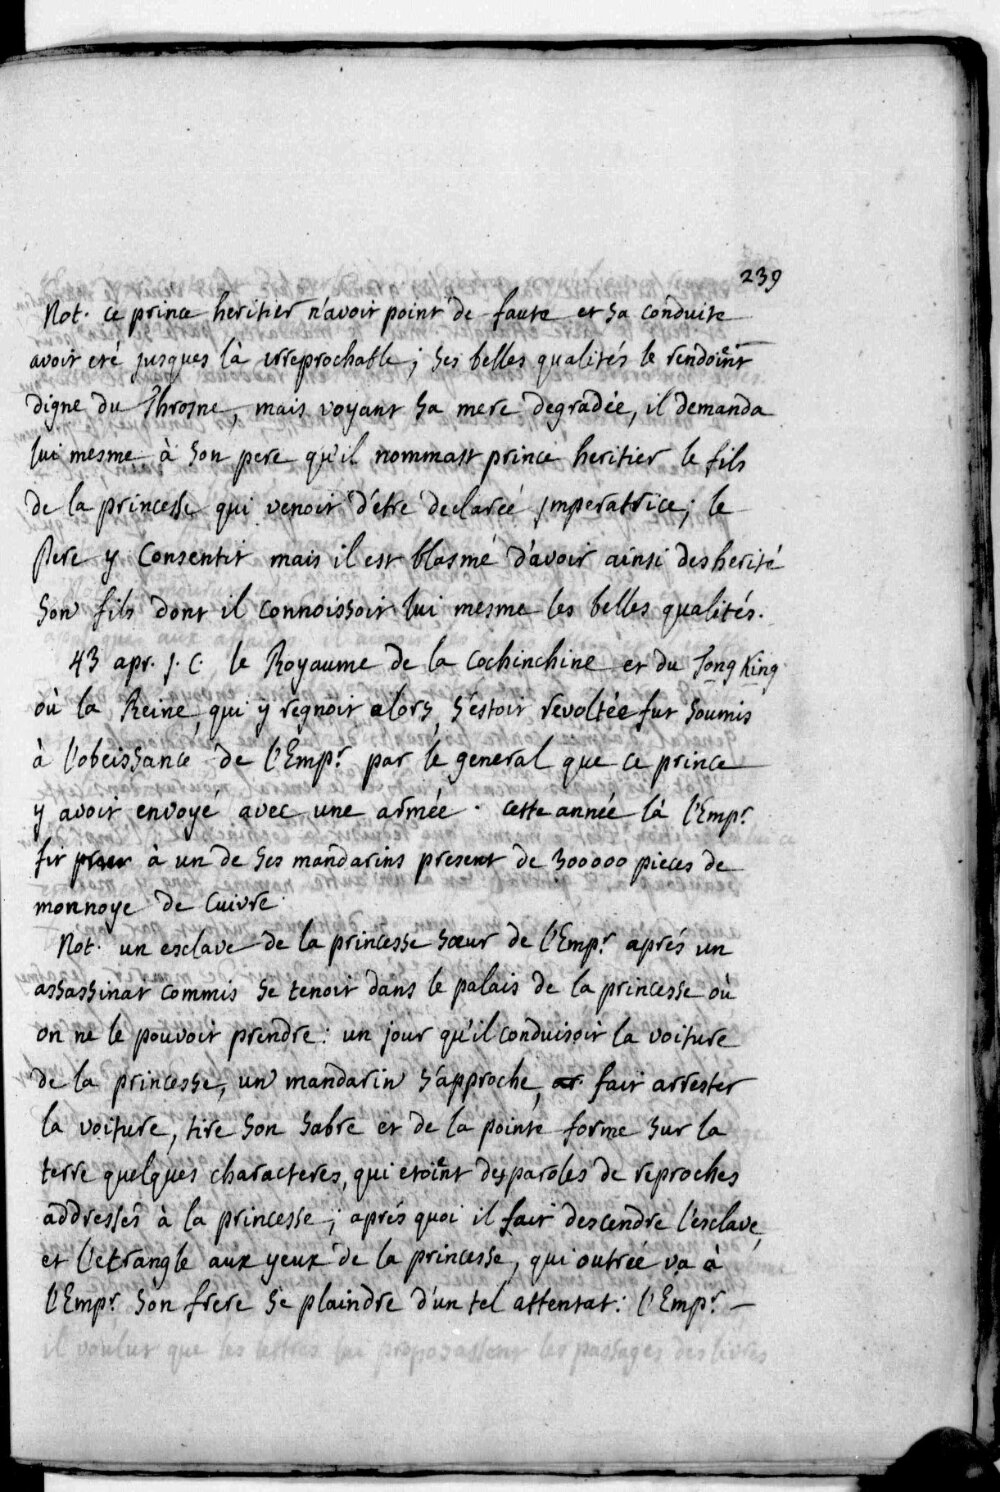 239
Not. ce prince heritier n'avoit point de faute et sa conduite
avoit eté jusques là irreprochable; ses belles qualités le rendoient
digne du Throsne, mais voyant sa mere degradée, il demanda
lui mesme à son pere qu'il nommast prince heritier le fils
de la princesse qui venoit d'étre declarée jmperatrice; le
Pere y consentit mais il est blasmé d'avoir ainsi desherité
son fils dont il connoissoit lui mesme les belles qualités.
43 apr. J. C. le Royaume de la Cochinchine et du Tong King
où la Reine, qui y regnoit alors, s'estoit revoltée fut soumis
à l'obeissance de l'Empr. par le general que ce prince
y avoit envoyé avec une armée. cette année là l'Empr.
fit à un de ses mandarins present de 300000 pieces de
monnoye de cuivre.
Not. un esclave de la princesse sœur de l'Empr. aprés un
assassinat commis se tenoit dans le palais de la princesse où
on ne le pouvoit prendre: un jour qu'il conduisoit la voiture
de la princesse, un mandarin s'approche, fait arrester
la voiture, tire son sabre et de la pointe forme sur la
terre quelques characteres, qui etoient des paroles de reproches
addressés à la princesse; aprés quoi il fait descendre l'esclave,
et l'etrangle aux yeux de la princesse, qui outrée va à
l'Empr. son frere se plaindre d'un tel attentat: l'Empr. —
il voulut que les lettrés lui proposassent les passages des livres